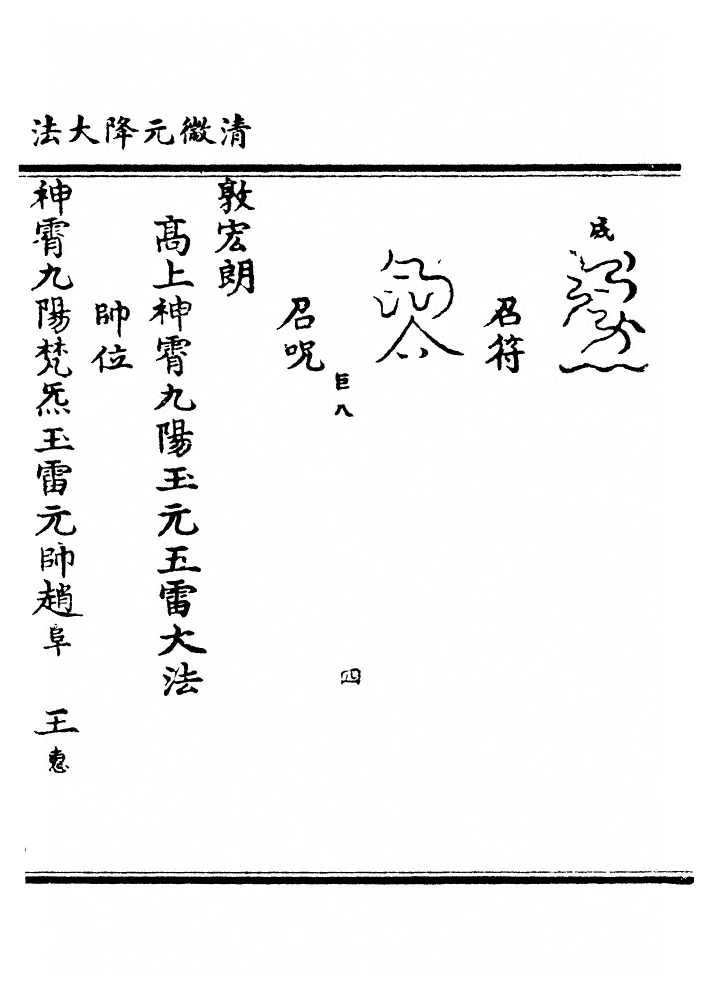 清微元降大法
成
召符
巨八
四
召呪
敦宏朗
高上神霄九陽玉元五雷大法
帥位
神霄九陽梵炁玉雷元帥趙阜 王惠